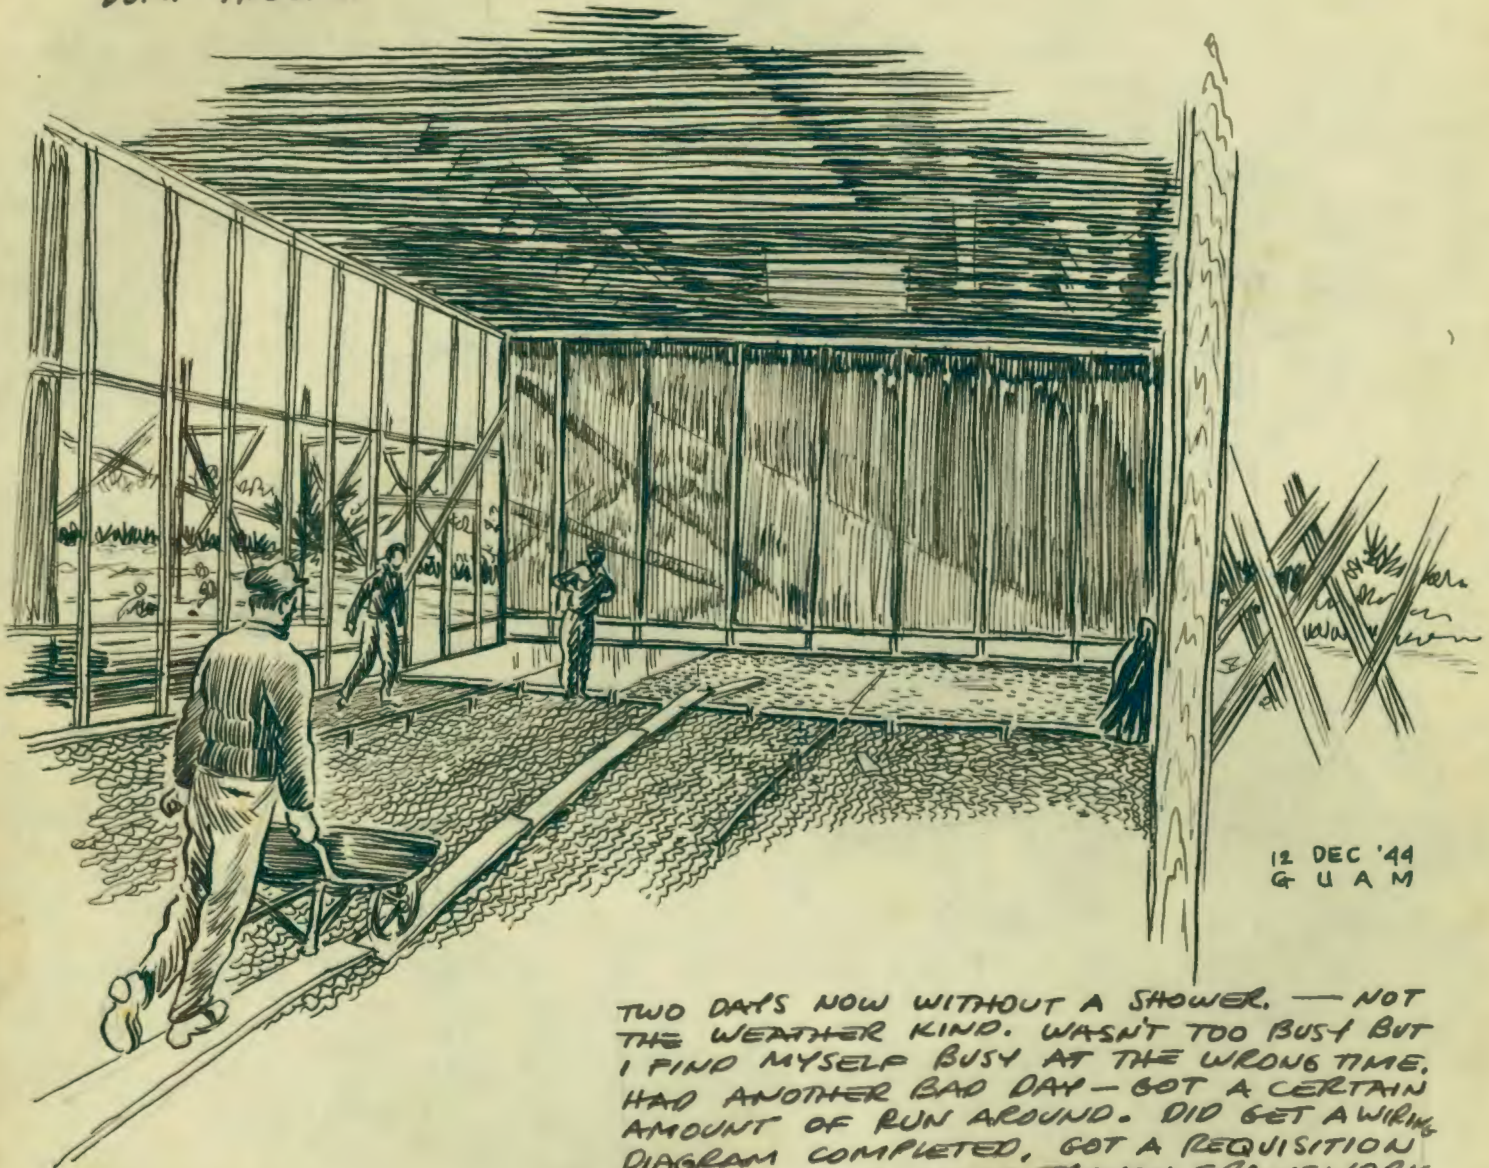 12 DEC '44
GUAM
TWO DAYS NOW WITHOUT A SHOWER. — NOT
THE WEATHER KIND. WASN'T TOO BUSY BUT
I FIND MYSELF BUSY AT THE WRONG TIME.
HAD ANOTHER BAD DAY — GOT A CERTAIN
AMOUNT OF RUN AROUND. DID GET A WIRING
DIAGRAM COMPLETED, GOT A REQUISITION